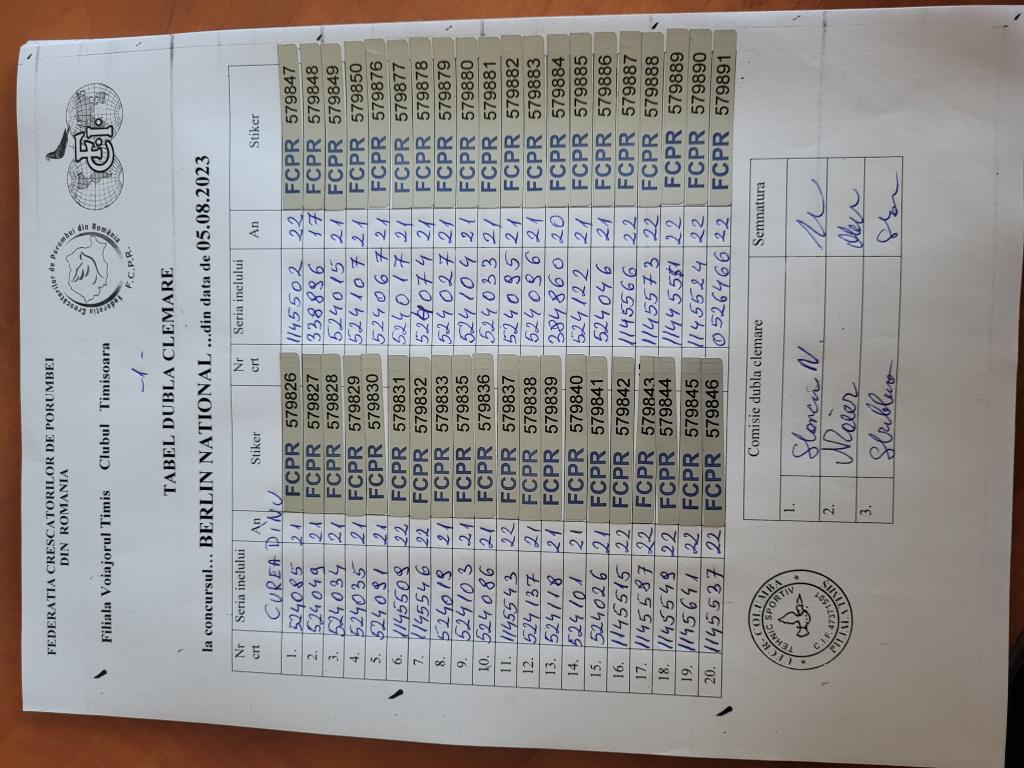 FEDERATIA CRESCATORILOR DE PORUMBEI
DIN ROMANIA
Federatia Crescătorilor de Porumbei din România
F.C.P.R.
FCI
Filiala Voiajorul Timis Clubul Timisoara
-1-
TABEL DUBLA CLEMARE
la concursul... BERLIN NATIONAL ...din data de 05.08.2023
Nr crt Seria inelului An Stiker Nr crt Seria inelului An Stiker
CUREA DINU
1. 524085 21 FCPR 579826 1145502 22 FCPR 579847
2. 524049 21 FCPR 579827 338896 17 FCPR 579848
3. 524034 21 FCPR 579828 524015 21 FCPR 579849
4. 524035 21 FCPR 579829 524107 21 FCPR 579850
5. 524091 21 FCPR 579830 524067 21 FCPR 579876
6. 1145509 22 FCPR 579831 524017 21 FCPR 579877
7. 1145546 22 FCPR 579832 524074 21 FCPR 579878
8. 524019 21 FCPR 579833 524027 21 FCPR 579879
9. 524103 21 FCPR 579835 524104 21 FCPR 579880
10. 524086 21 FCPR 579836 524033 21 FCPR 579881
11. 1145543 22 FCPR 579837 524095 21 FCPR 579882
12. 524137 21 FCPR 579838 524096 21 FCPR 579883
13. 524118 21 FCPR 579839 384860 20 FCPR 579884
14. 524101 21 FCPR 579840 524122 21 FCPR 579885
15. 524026 21 FCPR 579841 524046 21 FCPR 579886
16. 1145515 22 FCPR 579842 1145566 22 FCPR 579887
17. 1145587 22 FCPR 579843 1145573 22 FCPR 579888
18. 1145549 22 FCPR 579844 1145551 22 FCPR 579889
19. 1145641 22 FCPR 579845 1145524 22 FCPR 579890
20. 1145537 22 FCPR 579846 0526466 22 FCPR 579891
Comisie dubla clemare Semnatura
1. Stanciu N.
2. Maier
3.
COLUMBA
TEHNIC SPORTIV